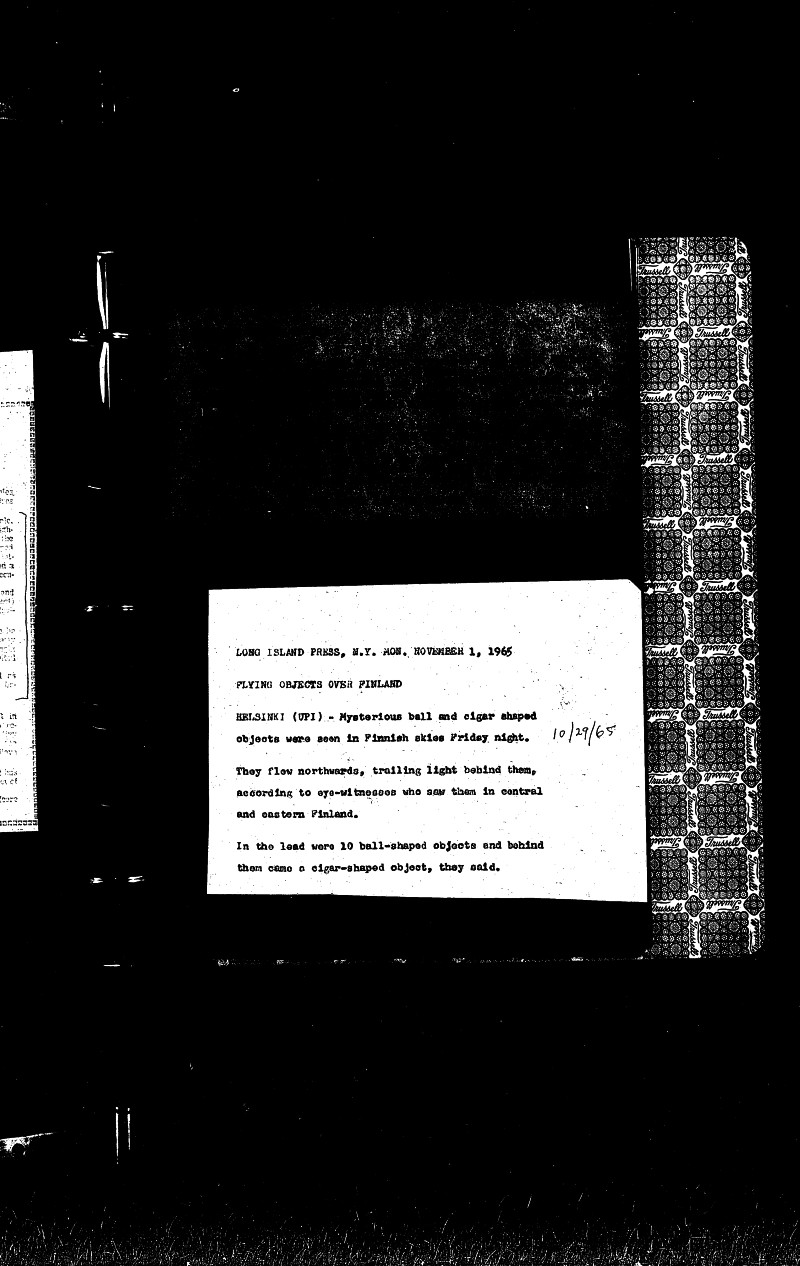 LONG ISLAND PRESS, N.Y. MON. NOVEMBER 1, 1965
FLYING OBJECTS OVER FINLAND
HELSINKI (UPI) - Mysterious ball and cigar shaped
objects were seen in Finnish skies Friday night.
10/29/65
They flew northwards, trailing light behind them,
according to eye-witnesses who saw them in central
and eastern Finland.
In the lead were 10 ball-shaped objects and behind
them came a cigar-shaped object, they said.
Trussell